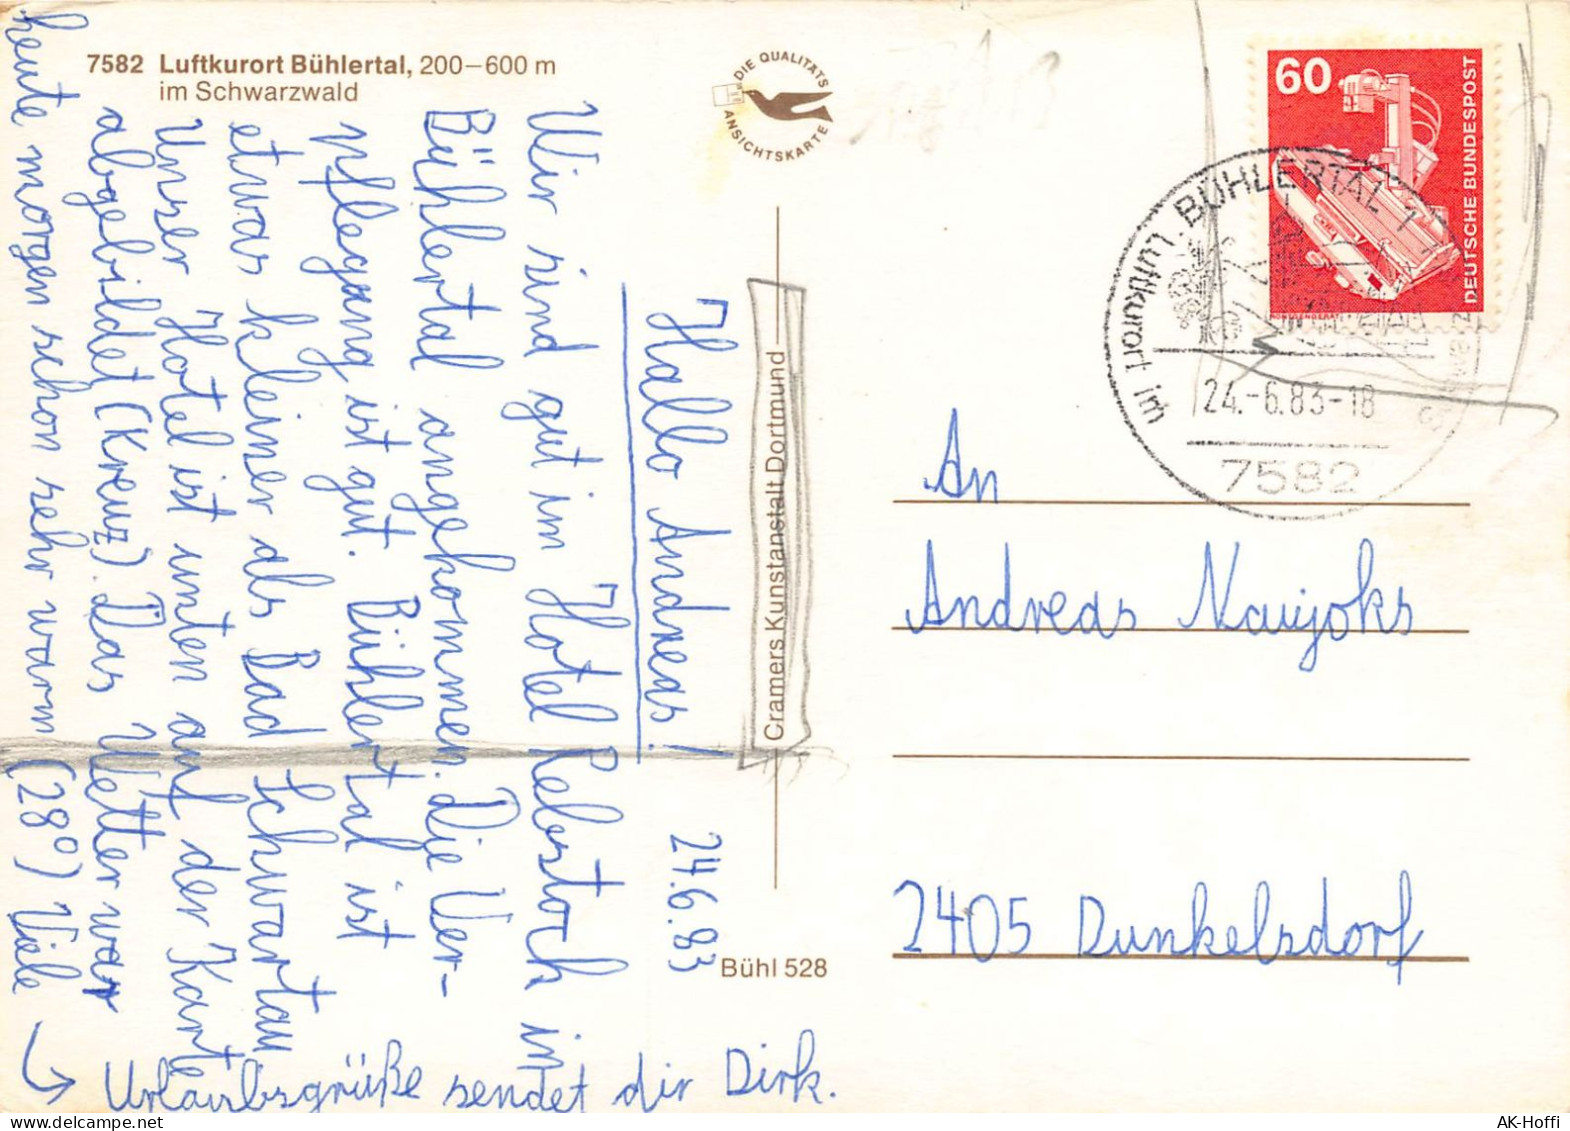 7582 Luftkurort Bühlertal, 200–600 m
im Schwarzwald
DIE QUALITÄTS
ANSICHTSKARTE
Hallo Andreas!
24.6.83
Wir sind gut im Hotel Rebstock in
Bühlertal angekommen. Die Ver-
pflegung ist gut. Bühlertal ist
etwas kleiner als Bad Schwartau
Unser Hotel ist unten auf der Karte
abgebildet (Kreuz). Das Wetter war
heute morgen schon sehr warm (28°) Viele
Urlaubsgrüße sendet dir Dirk.
Cramers Kunstanstalt Dortmund
Bühl 528
60
DEUTSCHE BUNDESPOST
BÜHLERTAL 1
Luftkurort im
24.-6.83-18
7582
An
Andreas Naujoks
2405 Dunkelsdorf
www.delcampe.net
AK-Hoffi